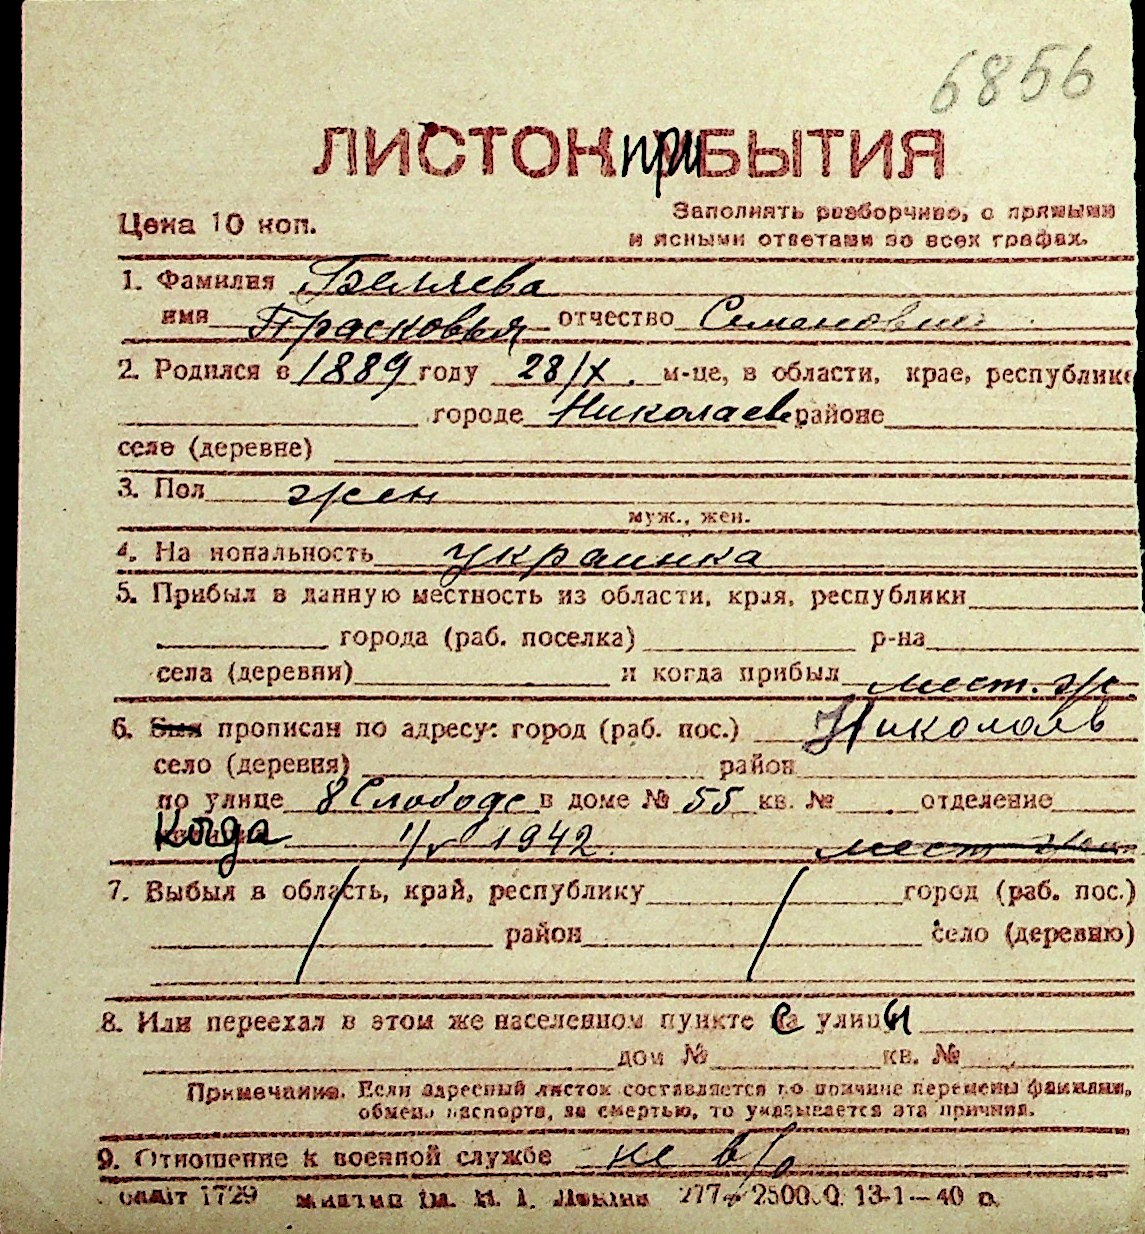 6856
ЛИСТОК ПРИБЫТИЯ
Цена 10 коп.
Заполнять разборчиво, с прямыми
и ясными ответами во всех графах.
1. Фамилия Беляева
имя Прасковья отчество Семеновна
2. Родился в 1889 году 28/X. м-це, в области, крае, республике
городе Николаев районе
село (деревне)
3. Пол жен
муж., жен.
4. На иональность украинка
5. Прибыл в данную местность из области, края, республики
города (раб. поселка) р-на
села (деревни) и когда прибыл мест. ж.
6. Был прописан по адресу: город (раб. пос.) Николаев
село (деревня) район
по улице 8 Слободе в доме № 55 кв. № отделение
Когда 1/V 1942 мест жит.
7. Выбыл в область, край, республику город (раб. пос.)
район село (деревню)
8. Или переехал в этом же населенном пункте с улицы
дом № кв. №
Примечание. Если адресный листок составляется по причине перемены фамилии,
обмена паспорта, за смертью, то указывается эта причина.
9. Отношение к военной службе не в/о
1729 277 2500.0. 13-1—40 р.